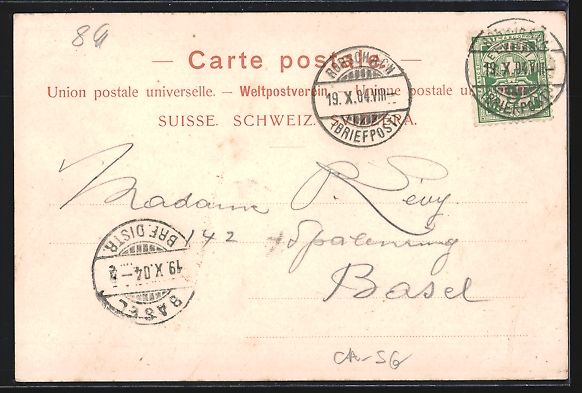 — Carte postale. —
Union postale universelle. — Weltpostverein. — Unione postale
SUISSE. SCHWEIZ. SVIZZERA.
RORSCHACH
19. X. 04. VIII
(BRIEFPOST)
19. X. 04. VIII
(BRIEFPOST)
Madame R. Lévy
142 Spalenring
Basel
BRF. DISTR.
19. X. 04
BASEL